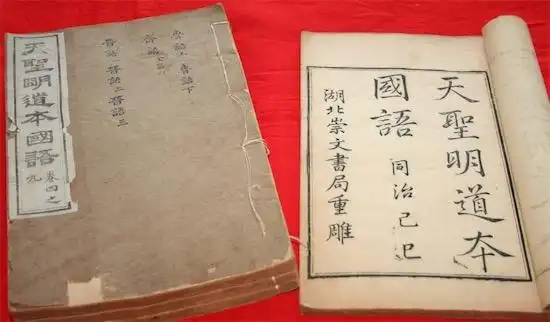 天聖明道本國語 卷四之九
魯語上 魯語下
齊語
晉語一 晉語二 晉語三
天聖明道本
國語 同治己巳
湖北崇文書局重雕